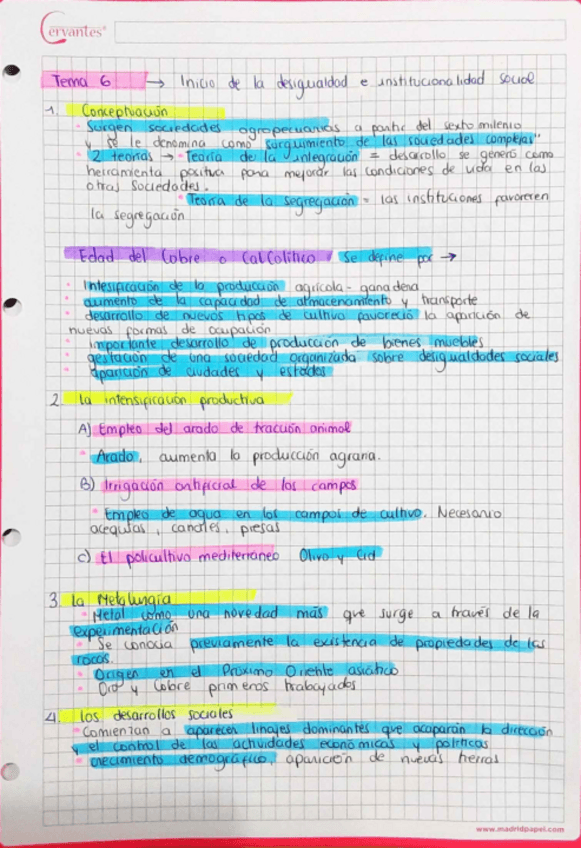 Cervantes
Tema 6 → Inicio de la desigualdad e institucionalidad social
1. Conceptuación
• Surgen sociedades agropecuarias a partir del sexto milenio
y se le denomina como "surguimiento de las sociedades complejas"
• 2 teorías → • Teoría de la integración = desarrollo se generó como
herramienta positiva para mejorar las condiciones de vida en las
otras sociedades.
• Teoría de la segregación = las instituciones favorecen
la segregación
Edad del Cobre o Calcolítico se define por →
• Intesificación de la producción agrícola - ganadera
• aumento de la capacidad de almacenamiento y transporte
• desarrollo de nuevos tipos de cultivo favoreció la aparición de
nuevas formas de ocupación
• importante desarrollo de producción de bienes muebles
• gestación de una sociedad organizada sobre desigualdades sociales
• aparición de ciudades y estados
2. la intensificación productiva
A) Empleo del arado de tracción animal
• Arado, aumenta la producción agraria.
B) Irrigación artificial de los campos
• Empleo de agua en los campos de cultivo. Necesario
acequias, canales, presas
C) El policultivo mediterráneo Olivo y Cid
3. la Metalurgia
• Metal como una novedad más que surge a través de la
experimentación
• Se conocía previamente la existencia de propiedades de las
rocas.
• Origen en el Próximo Oriente asiático
• Oro y Cobre primeros trabajados
4. los desarrollos sociales
• Comienzan a aparecer linajes dominantes que acaparan la dirección
y el control de las actividades económicas y políticas
• crecimiento demográfico, aparición de nuevas tierras
www.madridpapel.com